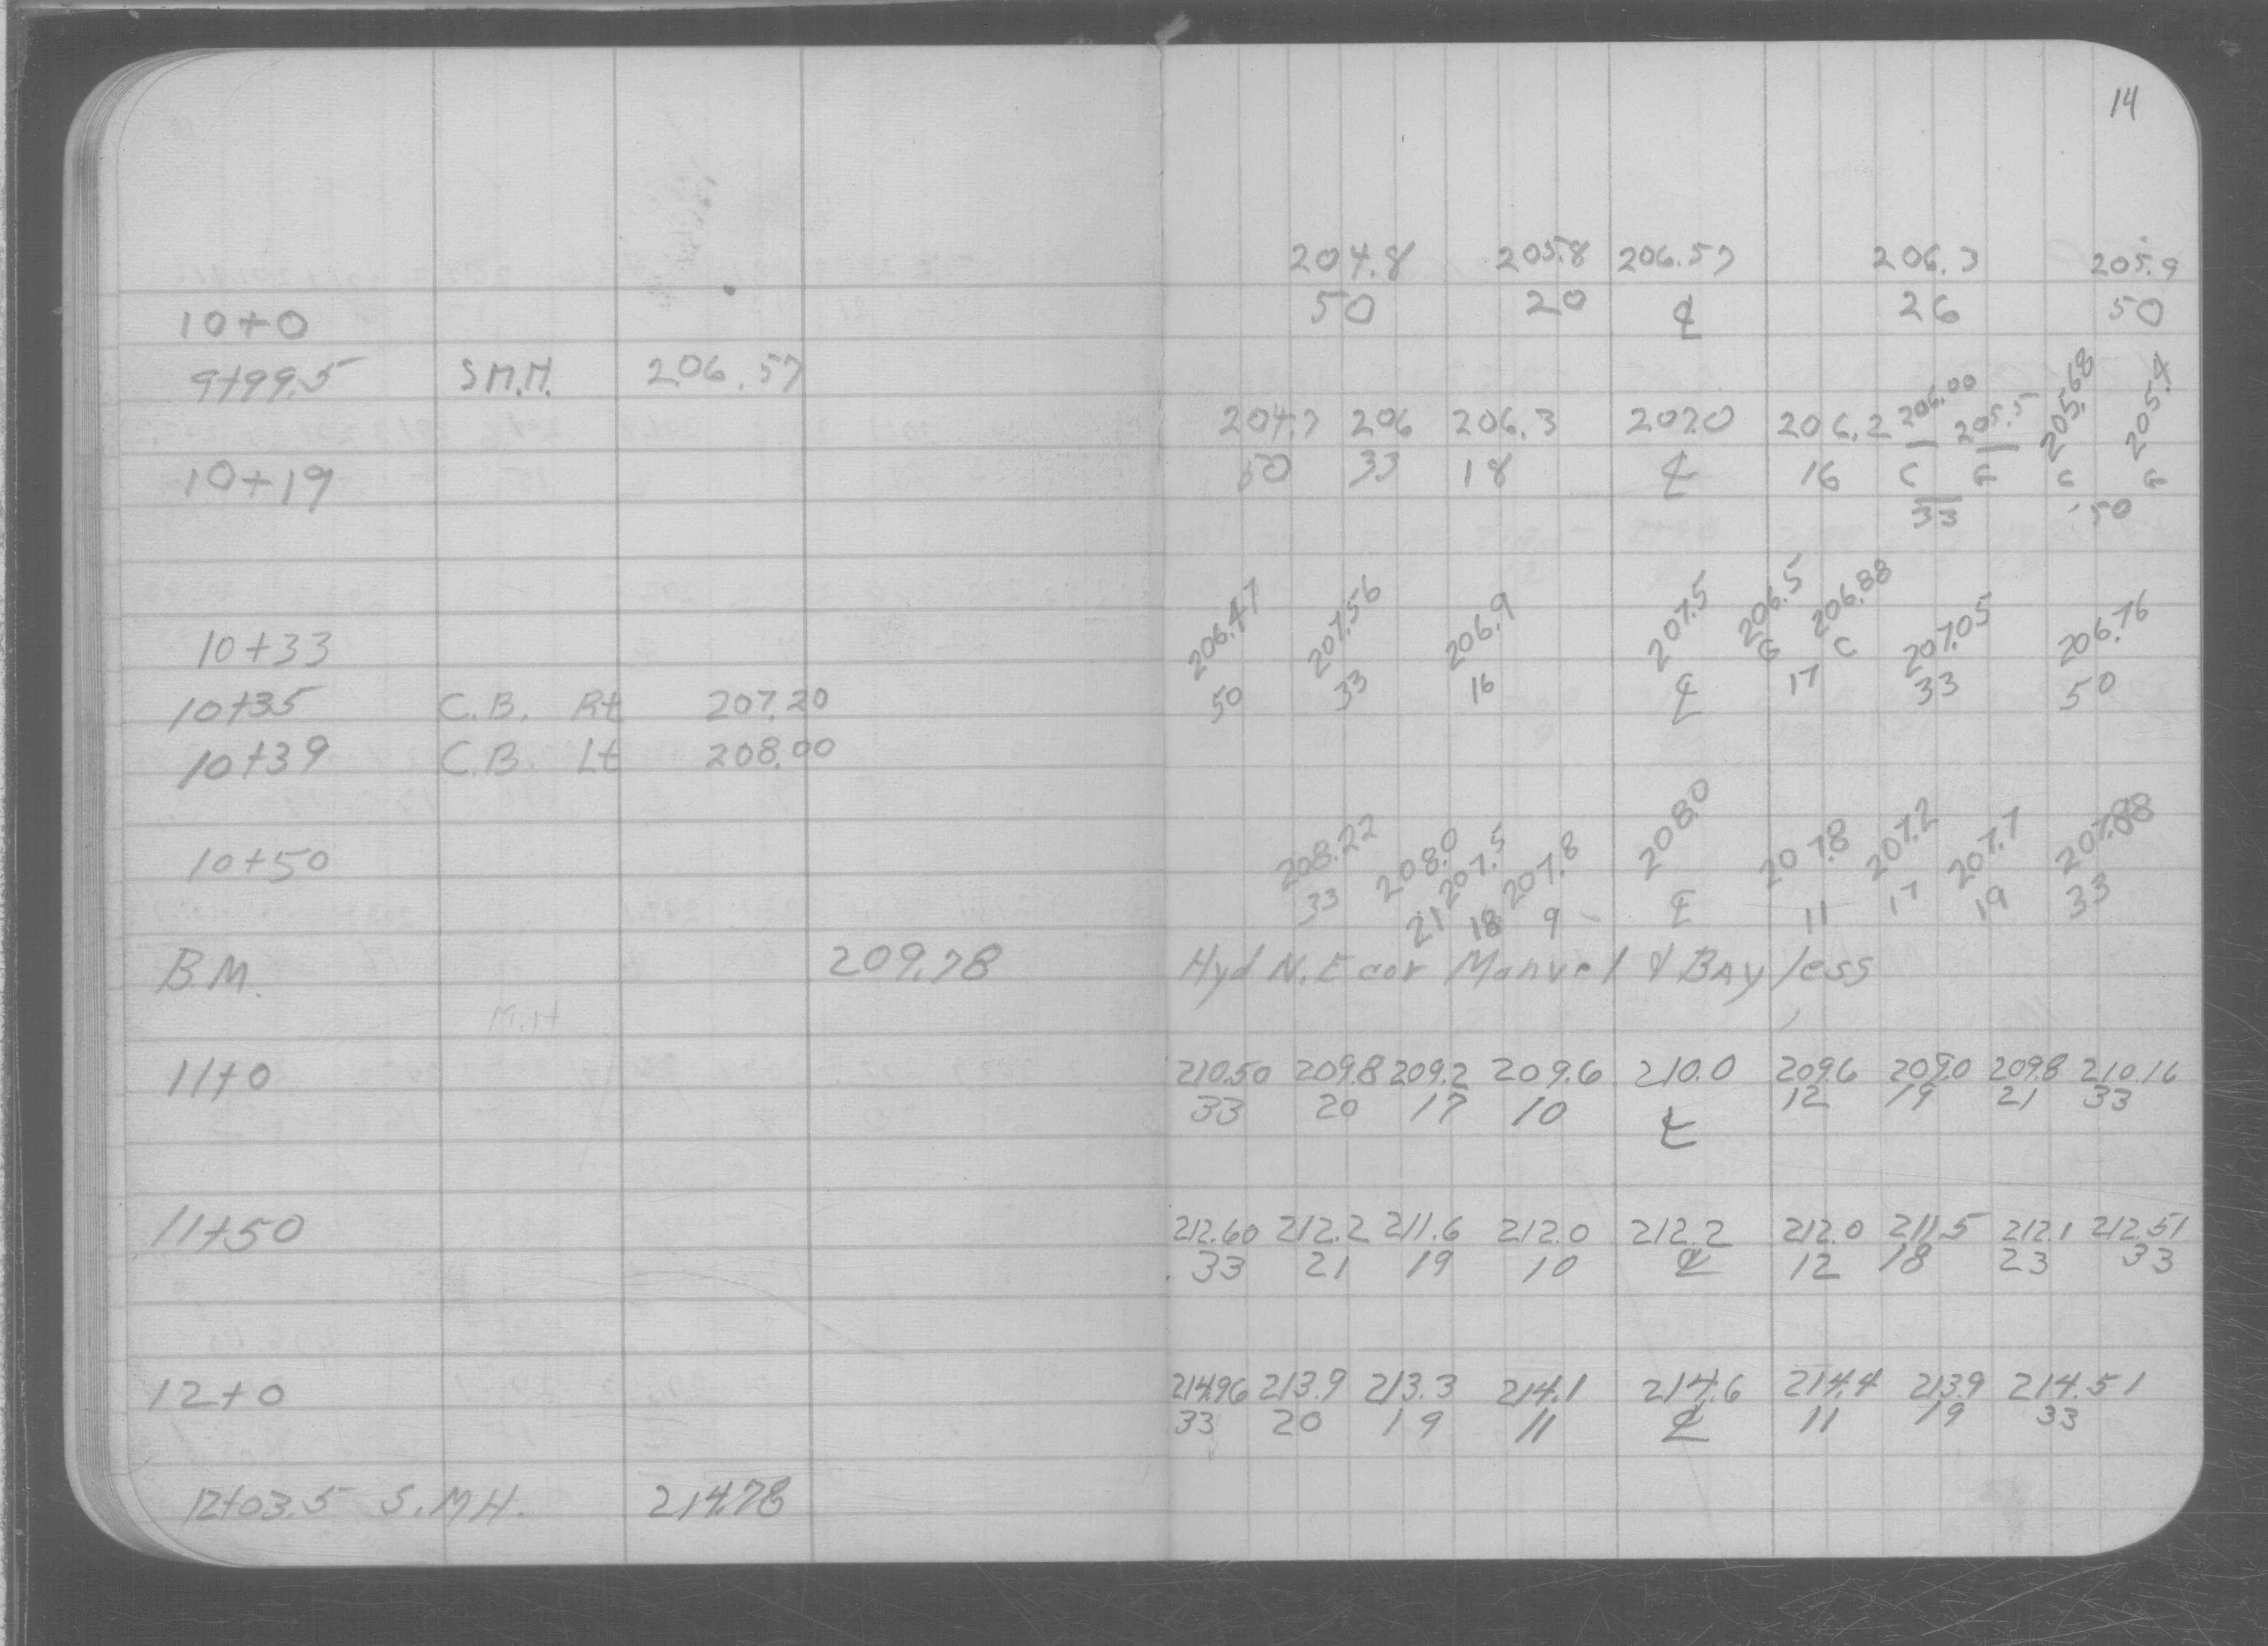 14
204.8 205.8 206.57 206.3 205.9
10+0 50 20 ℄ 26 50
9+99.5 S.M.H. 206.57
204.7 206 206.3 207.0 206.2 206.00 205.5 205.68 205.4
10+19 50 33 18 ℄ 16 C G C G
33 50
206.47 207.56 206.9 207.5 206.5 206.88 207.05 206.76
10+33 G C
10+35 C.B. Rt 207.20 50 33 16 ℄ 17 33 50
10+39 C.B. Lt 208.00
208.22 208.0 207.5 207.8 208.0 207.8 207.2 207.7 207.88
10+50 33 21 18 9 ℄ 11 17 19 33
B.M. 209.78 Hyd N.E cor Manvel & BAyless
M.H
11+0 210.50 209.8 209.2 209.6 210.0 209.6 209.0 209.8 210.16
33 20 17 10 ℄ 12 19 21 33
11+50 212.60 212.2 211.6 212.0 212.2 212.0 211.5 212.1 212.51
33 21 19 10 ℄ 12 18 23 33
12+0 214.96 213.9 213.3 214.1 214.6 214.4 213.9 214.51
33 20 19 11 ℄ 11 19 33
12+03.5 S.M.H. 214.78